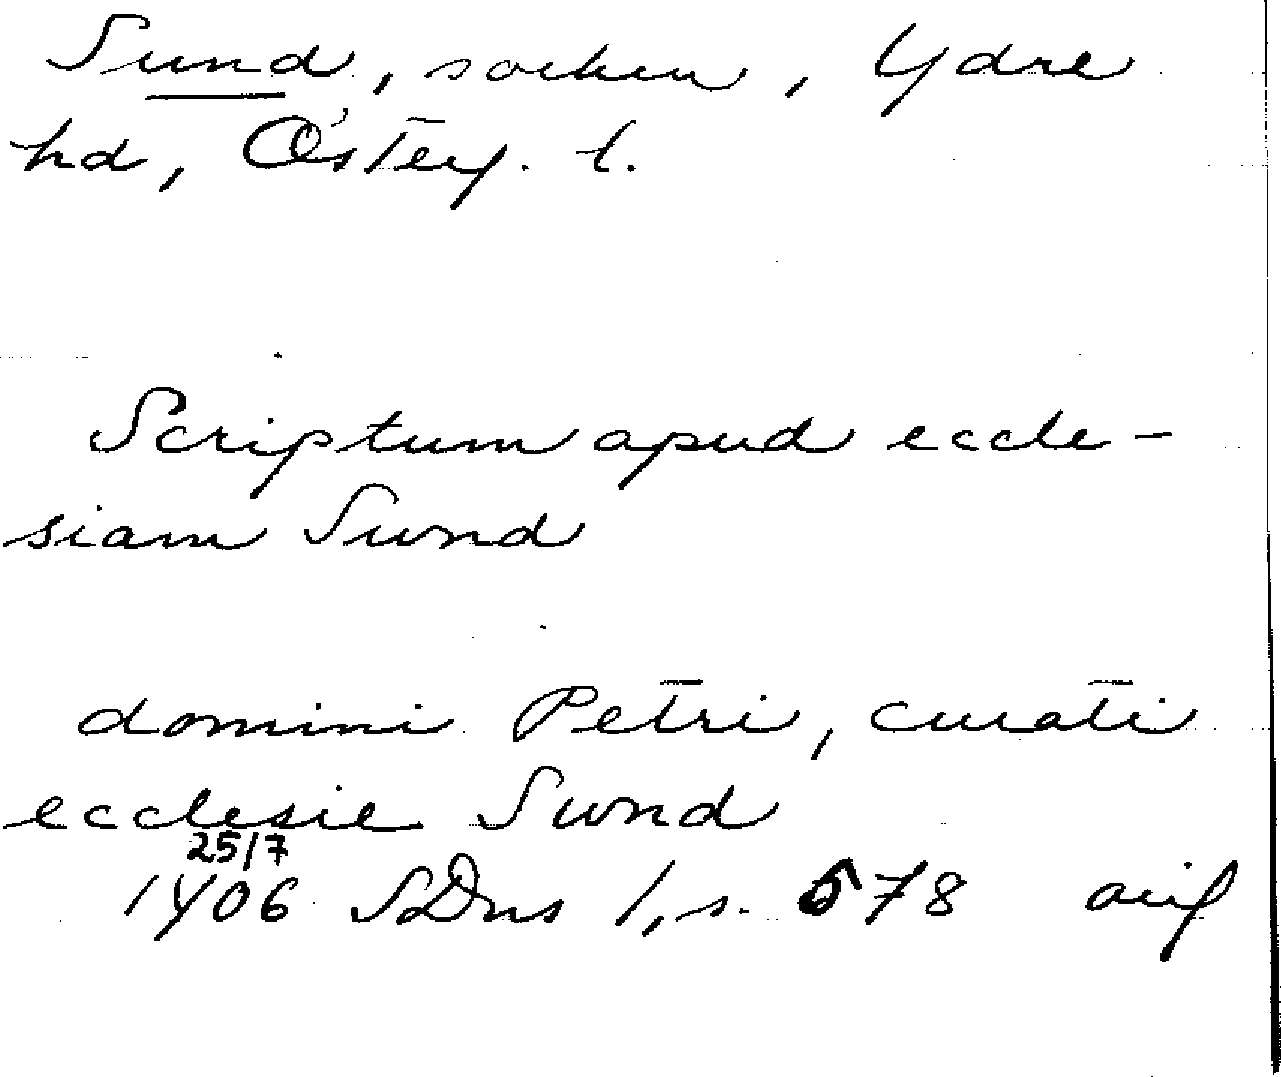 Sund, socken, Ydre
hd, Österg. l.
Scriptum apud eccle-
siam Sund
domini Petri, curati
ecclesie Sund
25/7
1406 SDns 1, s. 578 avs